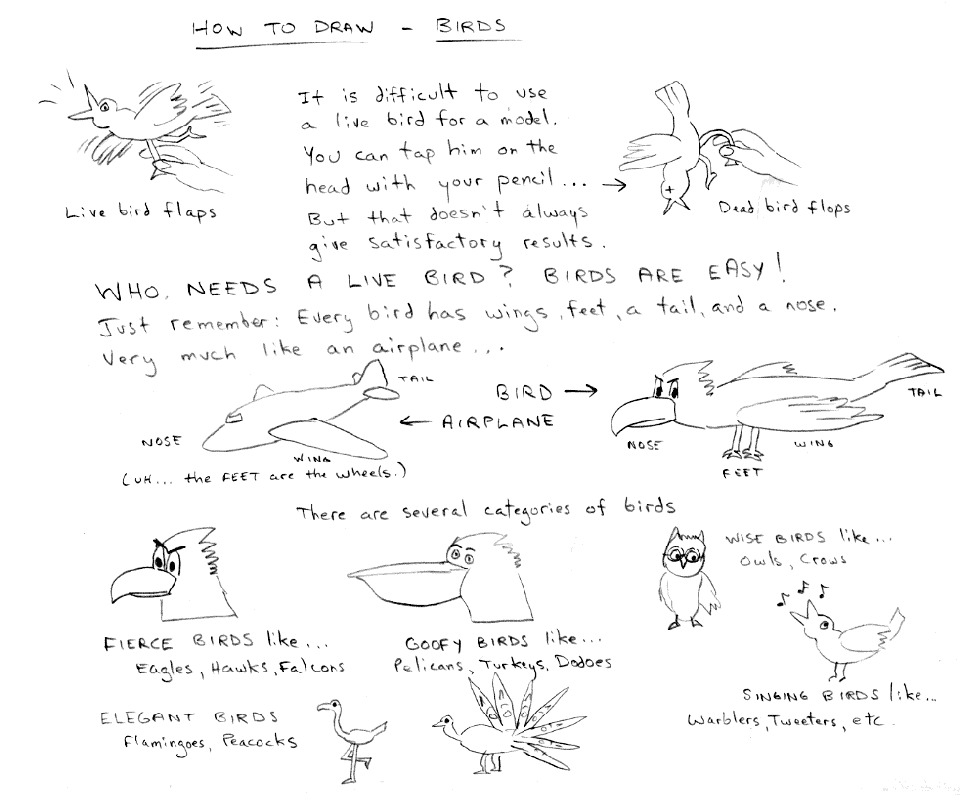 HOW TO DRAW - BIRDS
It is difficult to use
a live bird for a model.
You can tap him on the
head with your pencil... →
But that doesn't always
give satisfactory results.
Live bird flaps
Dead bird flops
WHO NEEDS A LIVE BIRD? BIRDS ARE EASY!
Just remember: Every bird has wings, feet, a tail, and a nose.
Very much like an airplane...
TAIL
BIRD →
← AIRPLANE
TAIL
NOSE
WING
NOSE
WING
FEET
(UH... the FEET are the wheels.)
There are several categories of birds
WISE BIRDS like...
Owls, Crows
FIERCE BIRDS like...
Eagles, Hawks, Falcons
GOOFY BIRDS like...
Pelicans, Turkeys, Dodoes
SINGING BIRDS like...
Warblers, Tweeters, etc.
ELEGANT BIRDS
Flamingoes, Peacocks